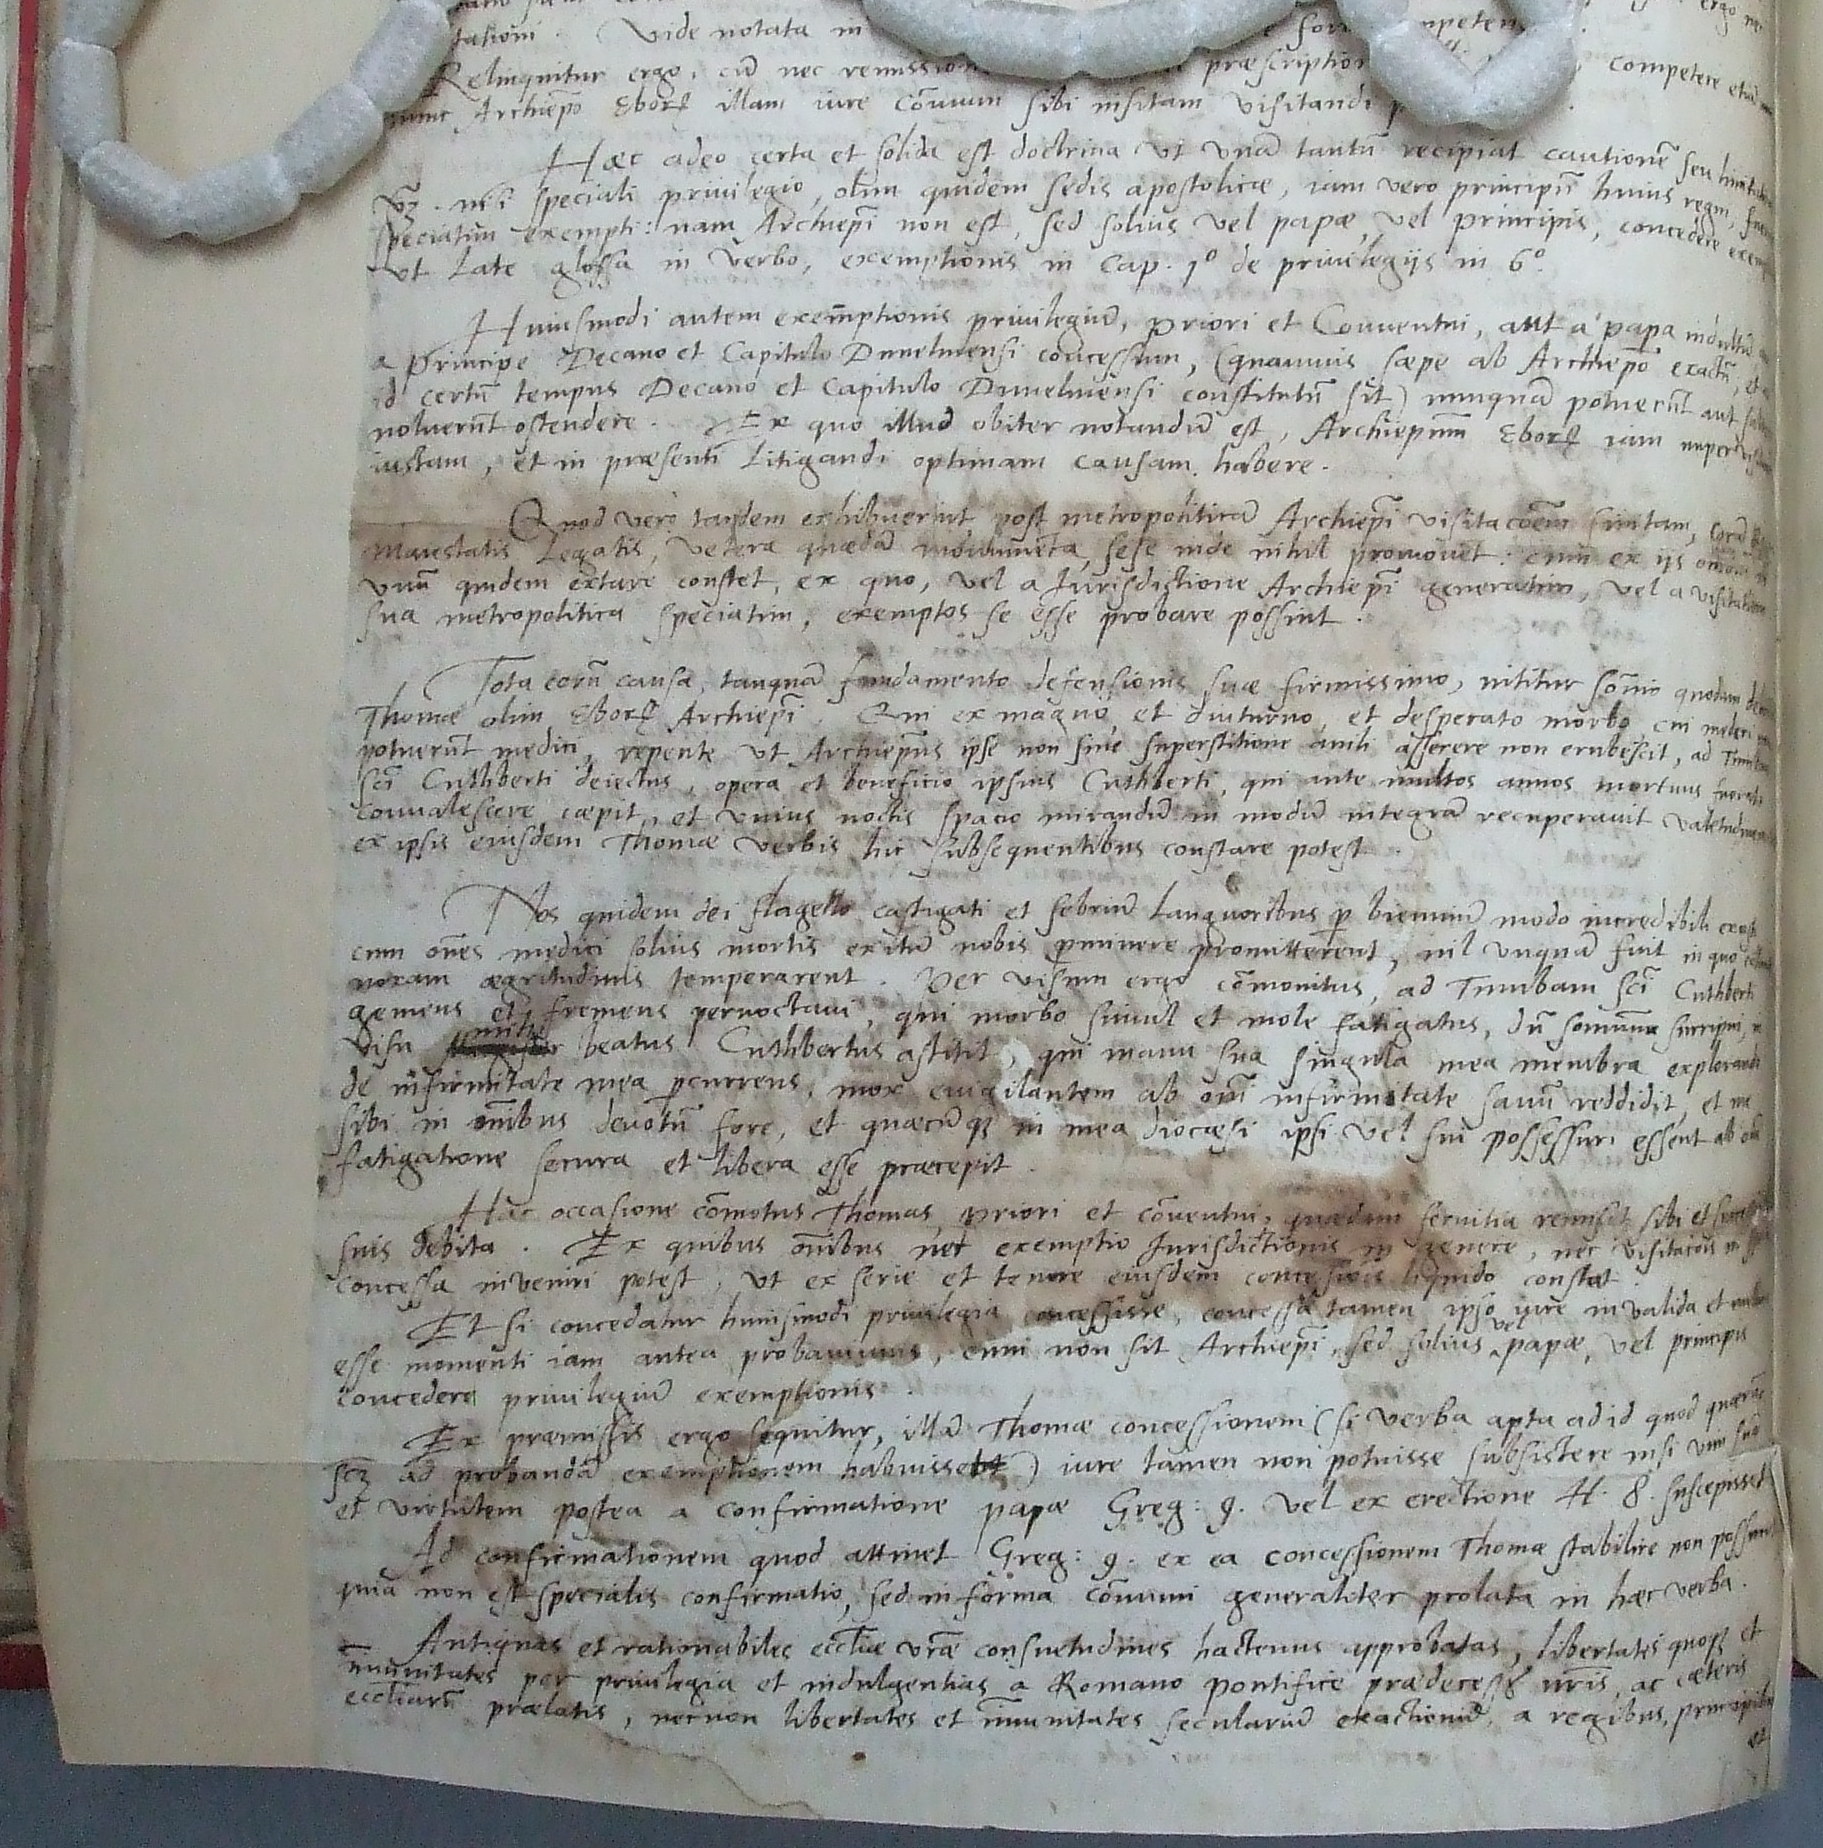 tationi. (Vide notata in
Relinquitur ergo, cū nec remission præscription competere etiā
nunc Archiepo Eborꝭ illam iure cōmun sibi insitam visitandi
Hæc adeo certa et solida est doctrina ut vnā tantū recipiat cautionē seu limitat
vz. nisi speciali privilegio, olim quidem sedis apostolicæ, iam vero principū huius regni, fuer
speciatim exempti: nam Archiepī non est, sed solius vel papæ, vel principis, concedere exemp
vt late glossa in verbo, exemptionis in cap. 1º de privilegijs in 6º.
Huiusmodi autem exemptionis privilegiū, priori et Conventui, aut a papa indultū
a principe Decano et Capitulo Dunelmensi concessum, (quamvis sæpe ab Archiepō exactū, et
id certū tempus Decano et Capitulo Dunelmensi constitutū sit) nunquā potuerūt aut saltem
noluerūt ostendere. Ex quo illud obiter notandū est, Archiepum Eborꝭ iam nuper
iustam, et in præsenti litigandi optimam causam habere.
Quod vero tandem exhibuerint post metropoliticā Archiepī visitacōem finitam, corā
Maiestatis Legatis, vetera quædā monumēta, sese inde nihil promovet: cum ex ijs
vnū quidem extare constet, ex quo, vel a Iurisdictione Archiepī generatim, vel a visitatione
sua metropolitica speciatim, exemptos se esse probare possint.
Tota eorū causa, tanquā fundamento defensionis suæ firmissimo, nititur sōnio quodam
Thomæ olim Eborꝭ Archiepī. Qui ex magno et diuturno, et desperato morbo, cui mederi
potuerūt medici, repente ut Archiepūs ipse non sine superstitione anili asserere non erubescit, ad Tumbam
scī Cuthberti deiectus, opera et beneficio ipsius Cuthberti, qui ante multos annos mortuus fuerat
convalescere cæpit, et vnius noctis spacio mirandū in modū integrā recuperavit valetudinem
ex ipsis eiusdem Thomæ verbis hic subsequentibus constare potest.
Nos quidem dei flagello castigati et febriū languoribus p biennium modo incredibili
cum oēs medici solius mortis exitū nobis pminere promitterent, nil vnquā fuit in quo
noxam ægritudinis temperarent. Per visum ergo cōmonitus, ad Tumbam scī Cuthberti
gemens et fremens pernoctavi, qui morbo simul et mole fatigatus, dū somnum surripui,
visu mihi beatus Cuthbertus astitit, qui manu sua singula mea membra explorando
de infirmitate mea pcurrens, mox evigilantem ab omī infirmitate sanū reddidit, et me
sibi in omibus devotū fore, et quæcūqꝫ in mea diocæsi ipsi vel sui possessuri essēt ab
fatigatione secura et libera esse præcepit.
Hac occasione cōmotus Thomas, priori et cōventui, quædam servitia remisit sibi et
suis debita. Ex quibus omībus nec exemptio Iurisdictionis in genere, nec visitacōis in
concessa inveniri potest, ut ex serie et tenore eiusdem concessiōis liquido constat.
Et si concedatur huiusmodi privilegia concessisse, concessa tamen ipso iure invalida et
esse momenti iam antea probavimus, cum non sit Archiepī, sed solius vel papæ, vel principis
concedere privilegiū exemptionis.
Ex præmissis ergo sequitur, illā Thomæ concessionem (si verba apta ad id quod
scz ad probandā exemptionem habuisset) iure tamen non potuisse subsistere nisi vim suā
et virtutem postea a confirmatione papæ Greg: 9. vel ex erectione H. 8. suscepisset
Ad confirmationem quod attinet Greg: 9. ex ea concessionem Thomæ stabilire non possunt
quia non est specialis confirmatio, sed in forma cōmuni generaliter prolata in hæc verba.
Antiquas et rationabiles eccliæ vrāe consuetudines hactenus approbatas, libertates quoqꝫ et
immunitates per privilegia et indulgentias a Romano pontifice prædecess nrīs, ac cæteris
eccliarū prælatis, necnon libertates et īmunitates seculariū exactionū, a regibus, principibus
et